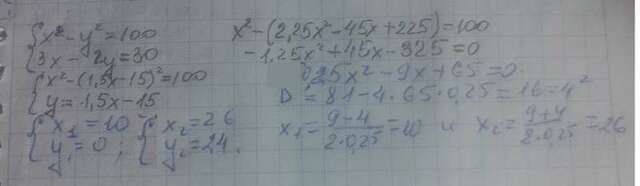 {x²-y²=100
{3x-2y=30
{x²-(1,5x-15)²=100
{y=1,5x-15
{x₁=10 {x₂=26
{y₁=0; {y₂=24.
x²-(2,25x²-45x+225)=100
-1,25x²+45x-325=0
0,25x²-9x+65=0
D=81-4·65·0,25=16=4²
x₁=(9-4)/(2·0,25)=10 и x₂=(9+4)/(2·0,25)=26